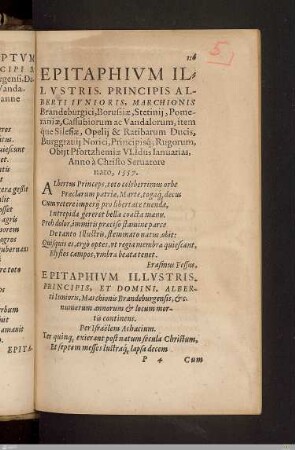 PTVM
CIPIS
rgensi. Da-
Vanda-
anne
116
5
EPITAPHIVM IL-
LVSTRIS. PRINCIPIS AL-
BERTI IVNIORIS, MARCHIONIS
Brandeburgici, Borussiæ, Stetinij, Pome-
raniæ, Cassubiorum ac Vandalorum, item
que Silesiæ, Opelij & Ratibarum Ducis,
Burggrauij Norici, Principisq; Rugorum,
Obijt Pfortzhemiæ VI. Idus Ianuarias,
Anno à Christo Seruatore
nato, 1557.
Albertus Princeps, toto celeberrimus orbe
Præclarum patriæ, Marte, togaq; decus
Cum vetere imperij pro libertate tuenda,
Intrepidè gereret bella coacta manu.
Proh dolor, immiti præcisus stamine parcæ
De tanto illustris, stemmate natus obit:
Quisquis es, ergò optes, vt regia membra quiescant,
Elysios campos, vmbra beata tenet.
Erasmus
EPITAPHIVM ILLVSTRIS,
PRINCIPIS, ET DOMINI, ALBER-
ti Iunioris, Marchionis Brandeburgensis, &c.
numerum annorum & locum mor-
tis continens.
Per Israëlem Achacium.
Ter quinq; exierant post natum secula Christum,
Et septem messes lustraq; lapsa decem
P 4 Cum
EPITA-